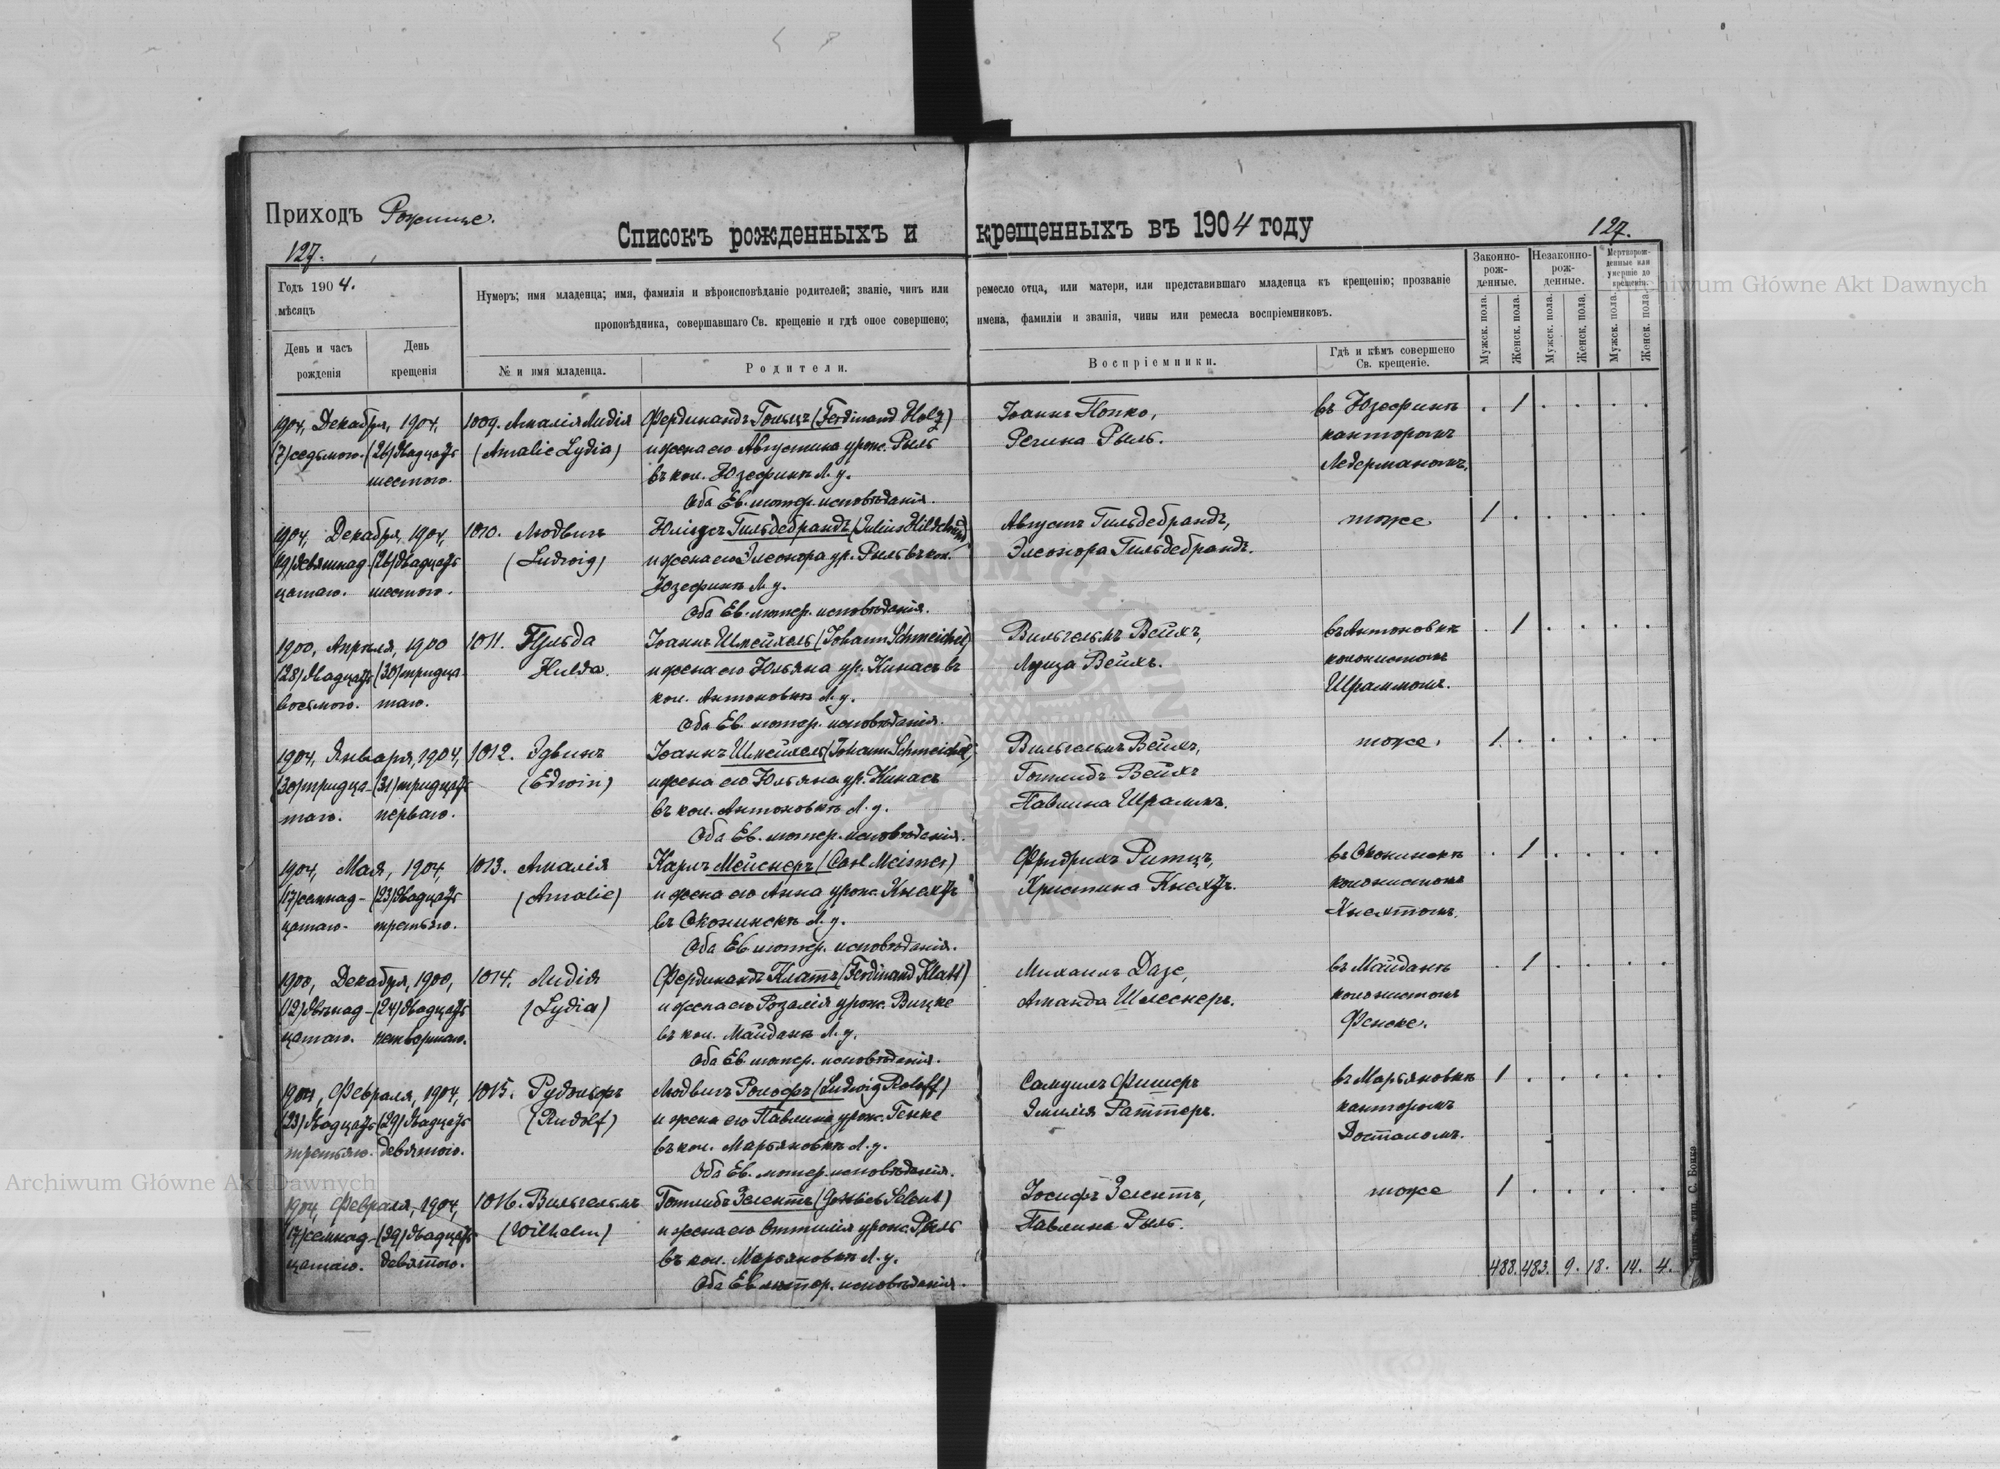 Приходъ Рожище.
127.
Списокъ рожденныхъ и крещенныхъ въ 1904 году
127.
Годъ 1904.
мѣсяцъ
День и часъ рожденія
День крещенія
Нумеръ; имя младенца; имя, фамилія и вѣроисповѣданіе родителей; званіе, чинъ или ремесло отца, или матери, или представившаго младенца къ крещенію; прозваніе
проповѣдника, совершавшаго Св. крещеніе и гдѣ оное совершено; имена, фамиліи и званія, чины или ремесла воспріемниковъ.
№ и имя младенца.
Родители.
Воспріемники.
Гдѣ и кѣмъ совершено Св. крещеніе.
Законно-рож-денные.
Незаконно-рож-денные.
Мертворож-денные или умершіе до крещенія.
Мужск. пола.
Женск. пола.
Мужск. пола.
Женск. пола.
Мужск. пола.
Женск. пола.
1904, Декабря, 1904, 1009. Амалія Лидія Фердинандъ Гольцъ (Ferdinand Holz) Іоаннъ Попко, въ Юзефинѣ . 1 . . . .
(7) седьмого. (26) двадцать (Amalie Lydia) и жена его Августина урож. Рыль Регина Рыль. канторомъ
шестого. въ кол. Юзефинѣ Л. у. Ледерманомъ.
Оба Ев. лютер. исповѣданія.
1904, Декабря, 1904, 1010. Людвигъ Юліусъ Гильдебрандъ (Julius Hildebrand) Августъ Гильдебрандъ, тоже 1 . . . . .
(19) девятнад- (26) двадцать (Ludwig) и жена его Элеонора ур. Рыль въ кол. Элеонора Гильдебрандъ.
цатаго. шестого. Юзефинѣ Л. у.
Оба Ев. лютер. исповѣданія.
1900, Апрѣля, 1900 1011. Гульда Іоаннъ Шмейхель (Johann Schmeichel) Вильгельмъ Вейхъ, въ Антоновкѣ . 1 . . . .
(28) двадцать (30) тридца- Hulda. и жена его Юльяна ур. Кинасъ въ Луиза Вейхъ. колонистомъ
восьмого. таго. кол. Антоновкѣ Л. у. Шраммомъ.
Оба Ев. лютер. исповѣданія.
1904, Января, 1904, 1012. Эдвинъ Іоаннъ Шмейхель (Johann Schmeichel) Вильгельмъ Вейхъ, тоже. 1 . . . . .
(30) тридца- (31) тридцать (Edwin) и жена его Юльяна ур. Кинасъ Готлибъ Вейхъ
таго. перваго. въ кол. Антоновкѣ Л. у. Павлина Шраммъ.
Оба Ев. лютер. исповѣданія.
1904, Мая, 1904, 1013. Амалія Карлъ Мейснеръ (Carl Meisner) Фридрихъ Ритцъ, въ Оконинскѣ . 1 . . . .
(17) семнад- (23) двадцать (Amalie) и жена его Анна урож. Кнехтъ Христина Кнехтъ. колонистомъ
цатаго. третьяго. въ Оконинскѣ Л. у. Кнехтомъ.
Оба Ев. лютер. исповѣданія.
1900, Декабря, 1900, 1014. Лидія Фердинандъ Клаттъ (Ferdinand Klatt) Михаилъ Дазе, въ Майданѣ . 1 . . . .
(12) двѣнад- (24) двадцать (Lydia) и жена его Розалія урож. Вицке Аманда Шлеснеръ. колонистомъ
цатаго. четвертаго. въ кол. Майданѣ Л. у. Фенске.
Оба Ев. лютер. исповѣданія.
1904, Февраля, 1904, 1015. Рудольфъ ЛюдвигъРолофъ (Ludwig Roloff) Самуилъ Фишеръ въ Марьяновкѣ 1 . . . . .
(23) двадцать (29) двадцать (Rudolf) и жена его Павлина урож. Генке Эмилія Раттеръ. канторомъ
третьяго. девятого. въ кол. Марьяновкѣ Л. у. Досталомъ.
Оба Ев. лютер. исповѣданія.
1904, Февраля, 1904, 1016. Вильгельмъ Готлибъ Зелентъ (Gottlieb Selent) Іосифъ Зелентъ, тоже 1 . . . . .
(17) семнад- (29) двадцать (Wilhelm) и жена его Оттилія урож. Рыль Павлина Рыль.
цатаго. девятого. въ кол. Марьяновкѣ Л. у.
Оба Ев. лютер. исповѣданія.
488. 483. 9. 18. 14. 4.
Archiwum Główne Akt Dawnych
Archiwum Główne Akt Dawnych